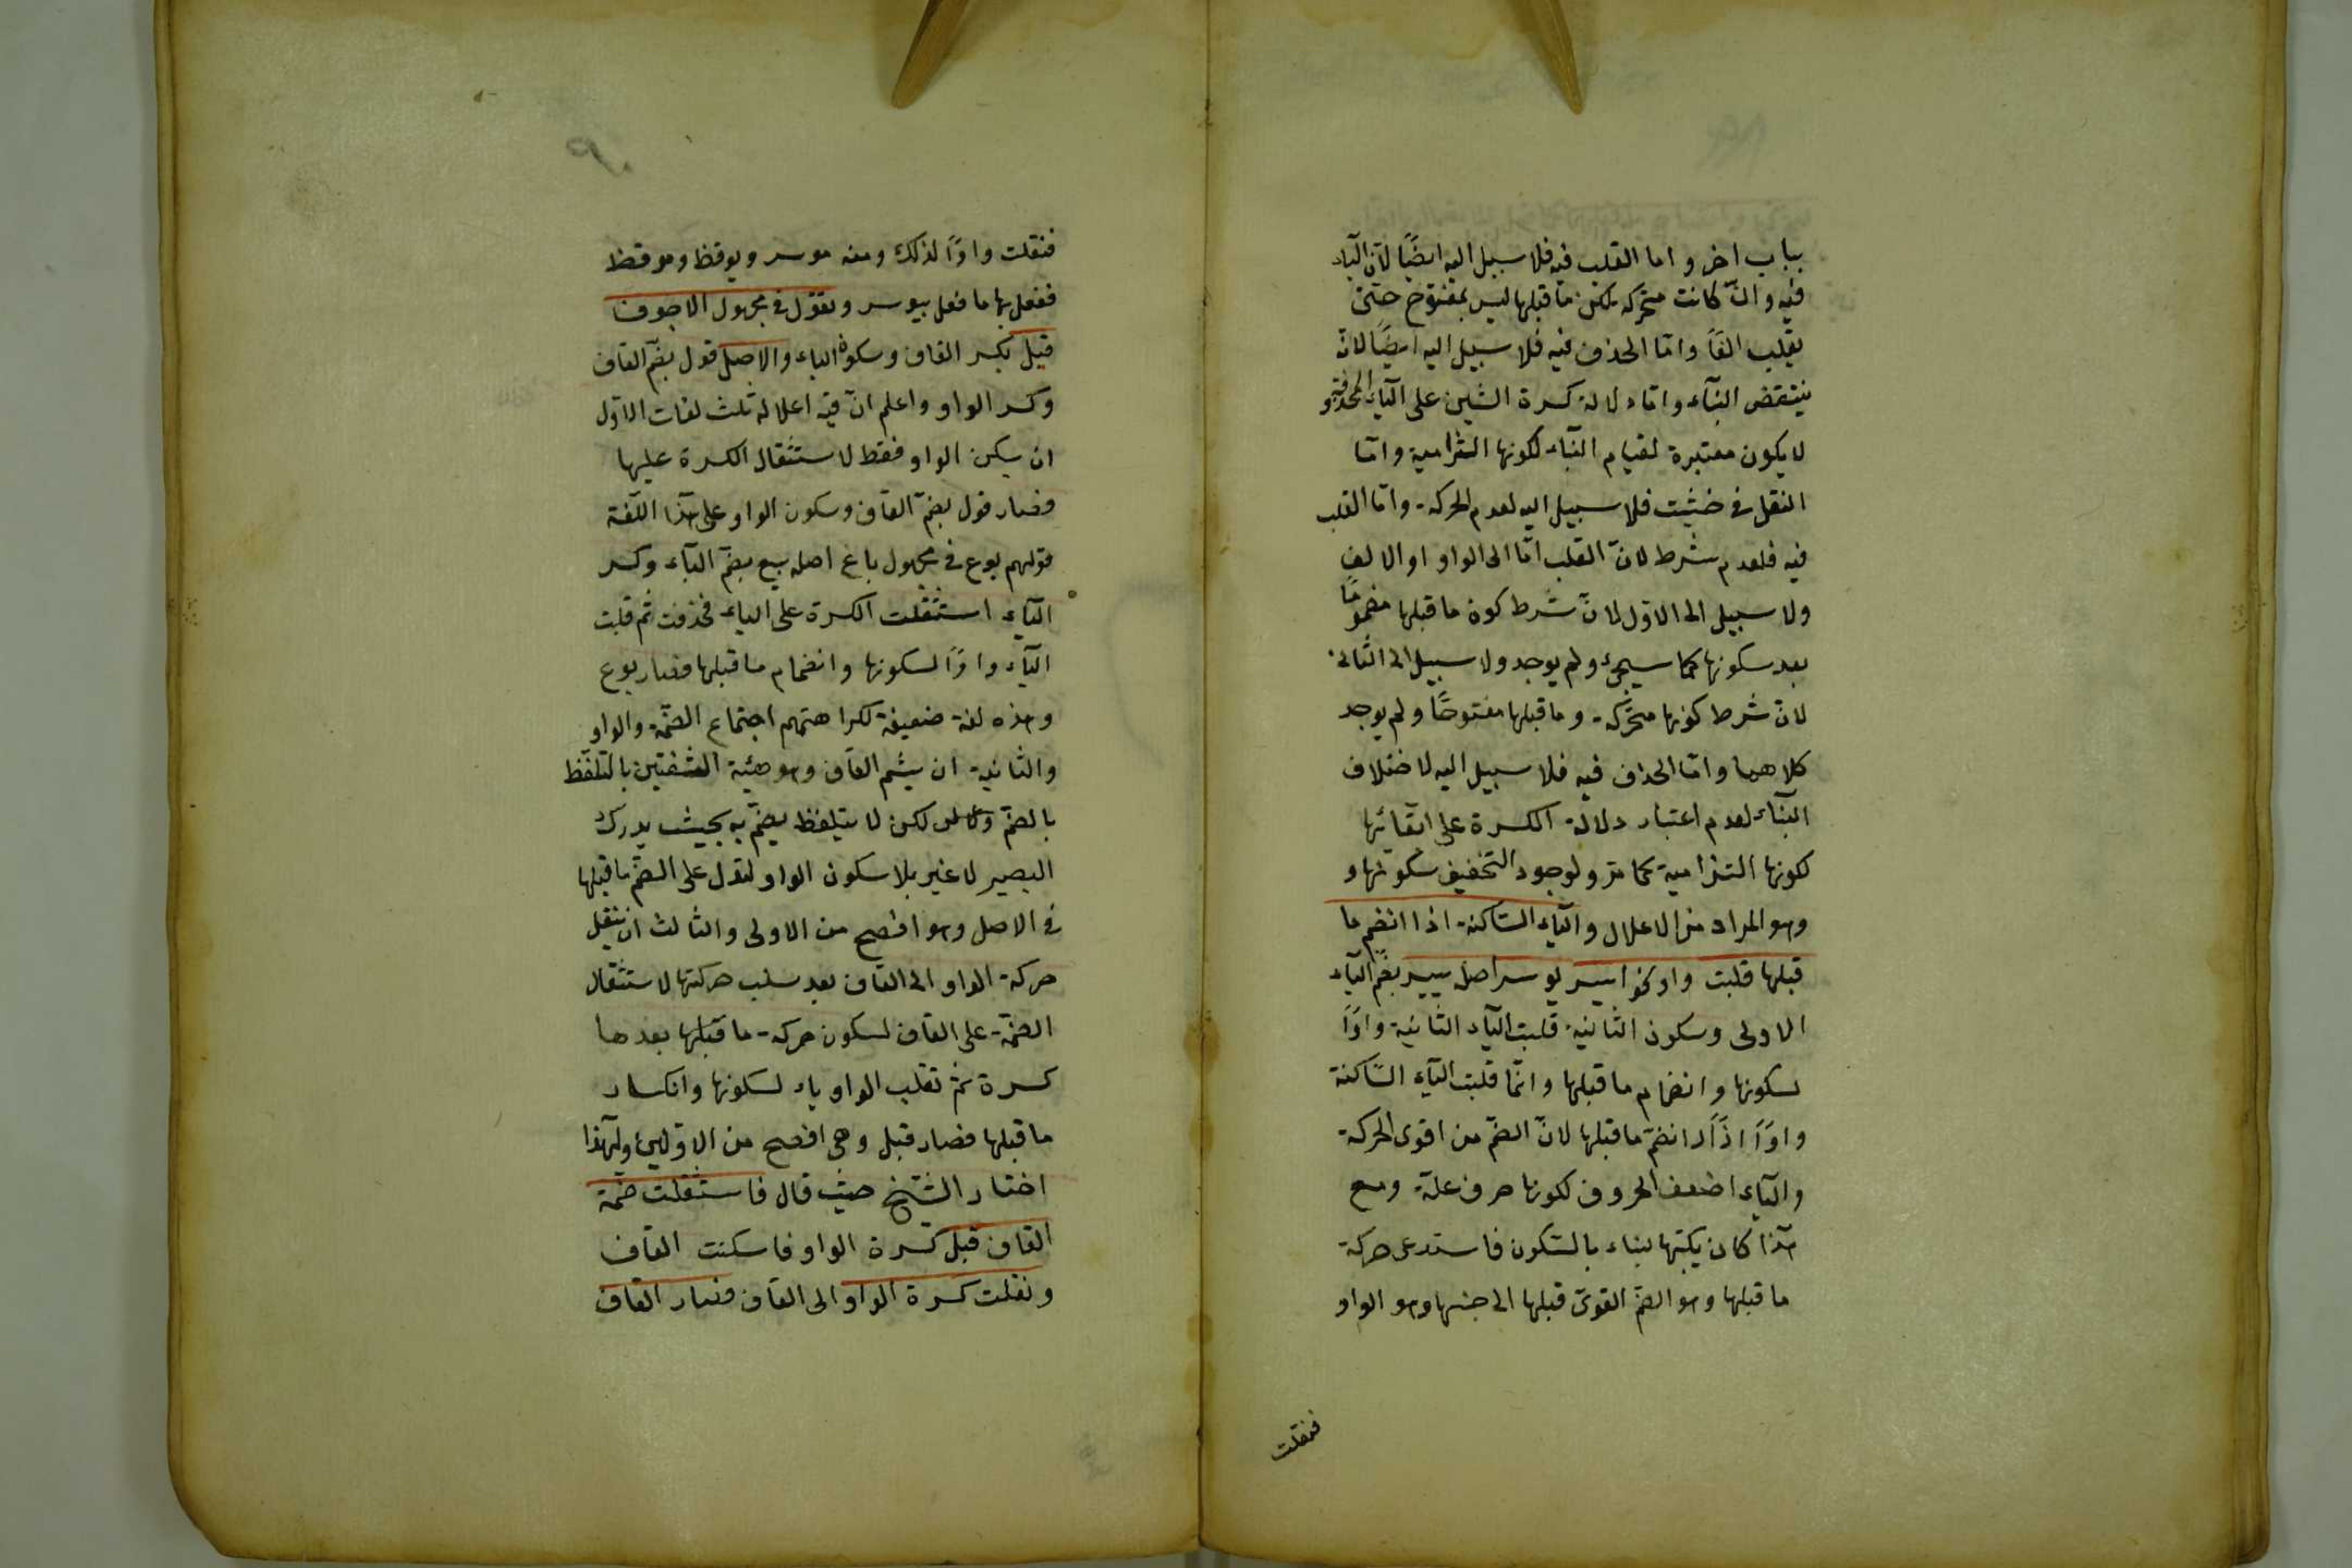 بباب اخر واما القلب فيه فلا سبيل اليه ايضًا لانّ الیاء
فيه وانّ كانت متحركة لكن ما قبلها ليس بمفتوح حتى
يقلب الفًا وامّا الحذف فيه فلا سبيل اليه ايضًا لانّ
ينتقض البنآء وامّا دلالة كسرة الشين على الیآء المحذوفة و
لا يكون معتبرة لقيام البنآء لكونها التزامية وامّا
النقل في خشيت فلا سبيل اليه لعدم الحركة وامّا القلب
فيه فلعدم شرط لانّ القلب امّا الى الواو او الالف
ولا سبيل الى الاوّل لانّ شرط كون ما قبلها مضمومًا
بعد سكونها كما سيجئ ولم يوجد ولا سبيل الى الثانى
لانّ شرط كونها متحركة وما قبلها مفتوحًا ولم يوجد
كلاهما وامّا الحذف فيه فلا سبيل اليه لاختلاف
البنآء لعدم اعتبار دلالة الكسرة على
لكونها التزامية كما مرّ ولوجود التخفيف سكونها و
وهو المراد من الاعلال والیآء السّاكنة اذا انضم ما
قبلها قلبت واو نحو ايسر يوسر اصله ييسر بضم الیآء
الاولى وسكون الثانية قلبت الیآء الثانية واوًا
لسكونها وانضمام ما قبلها وانّما قلبت الیآء السّاكنة
واوًا اذا انضمّ ما قبلها لانّ الضمّ من اقوى الحركة
والیآء اضعف الحروف لكونها حرف علّة ومع
هذا كان بالسّكون فاستدعى حركة
ما قبلها وهو الضمّ القوىّ قبلها الى جنسها وهو الواو
فنقلت
فنقلت واوًا لذلك ومنه موسر ويوقظ وموقظ
ففعل بها ما فعل بيوسر وتقول في مجهول الاجوف
قيل بكسر القاف وسكون الیاء والاصل قول بضمّ القاف
وكسر الواو واعلم انّ فيه اعلاله ثلث لغات الاوّل
ان يسكن الواو فقط لاستثقال الكسرة عليها
فصار قول بضمّ القاف وسكون الواو على هذا اللّغة
قولهم بوع في مجهول باع اصله بيع بضمّ البآء وكسر
الیآء استثقلت الكسرة على الیاء فحذفت ثم قلبت
الیآء واوًا لسكونها وانضمام ما قبلها فصار بوع
وهذه لغة ضعيفة لكراهتهم اجتماع الضمّة والواو
والثانية ان يشم القاف وهو هيئة الشفتين بالتلفّظ
بالضمّ لكن لا يتلفظ بضمّ به بحيث يدرك
البصير لا غير بلا سكون الواو لتدل على الضمّ ما قبلها
في الاصل وهو افصح من الاولى والثالث ان ينقل
حركة الواو الى القاف بعد سلب حركتها لاستثقال
الضمّة على القاف لسكون حركة ما قبلها بعدها
كسرة ثمّ تقلب الواو ياء لسكونها وانكسار
ما قبلها فصار قيل وهى افصح من الاوّلين ولهذا
اختار الشّيخ حيث قال فاستثقلت ضمة
القاف قبل كسرة الواو فاسكنت القاف
ونقلت كسرة الواو الى القاف فصار القاف